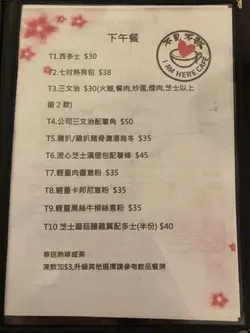 下午餐
不見不散
I AM HERE CAFE
T1.西多士 $30
T2.七吋熱狗包 $38
T3.三文治 $30(火腿,餐肉,炒蛋,煙肉,芝士以上
選 2 款)
T4.公司三文治配薯角 $50
T5.豬扒/雞扒豬骨濃湯烏冬 $35
T6.流心芝士漢堡包配薯條 $45
T7.輕量肉醬意粉 $35
T8.輕量卡邦尼意粉 $35
T9.輕量黑絲牛柳絲意粉 $35
T10.芝士蘑菇釀雞翼配多士(半份) $40
奉送熱啡或茶
凍飲加$3,升級其他選擇請參考飲品餐牌